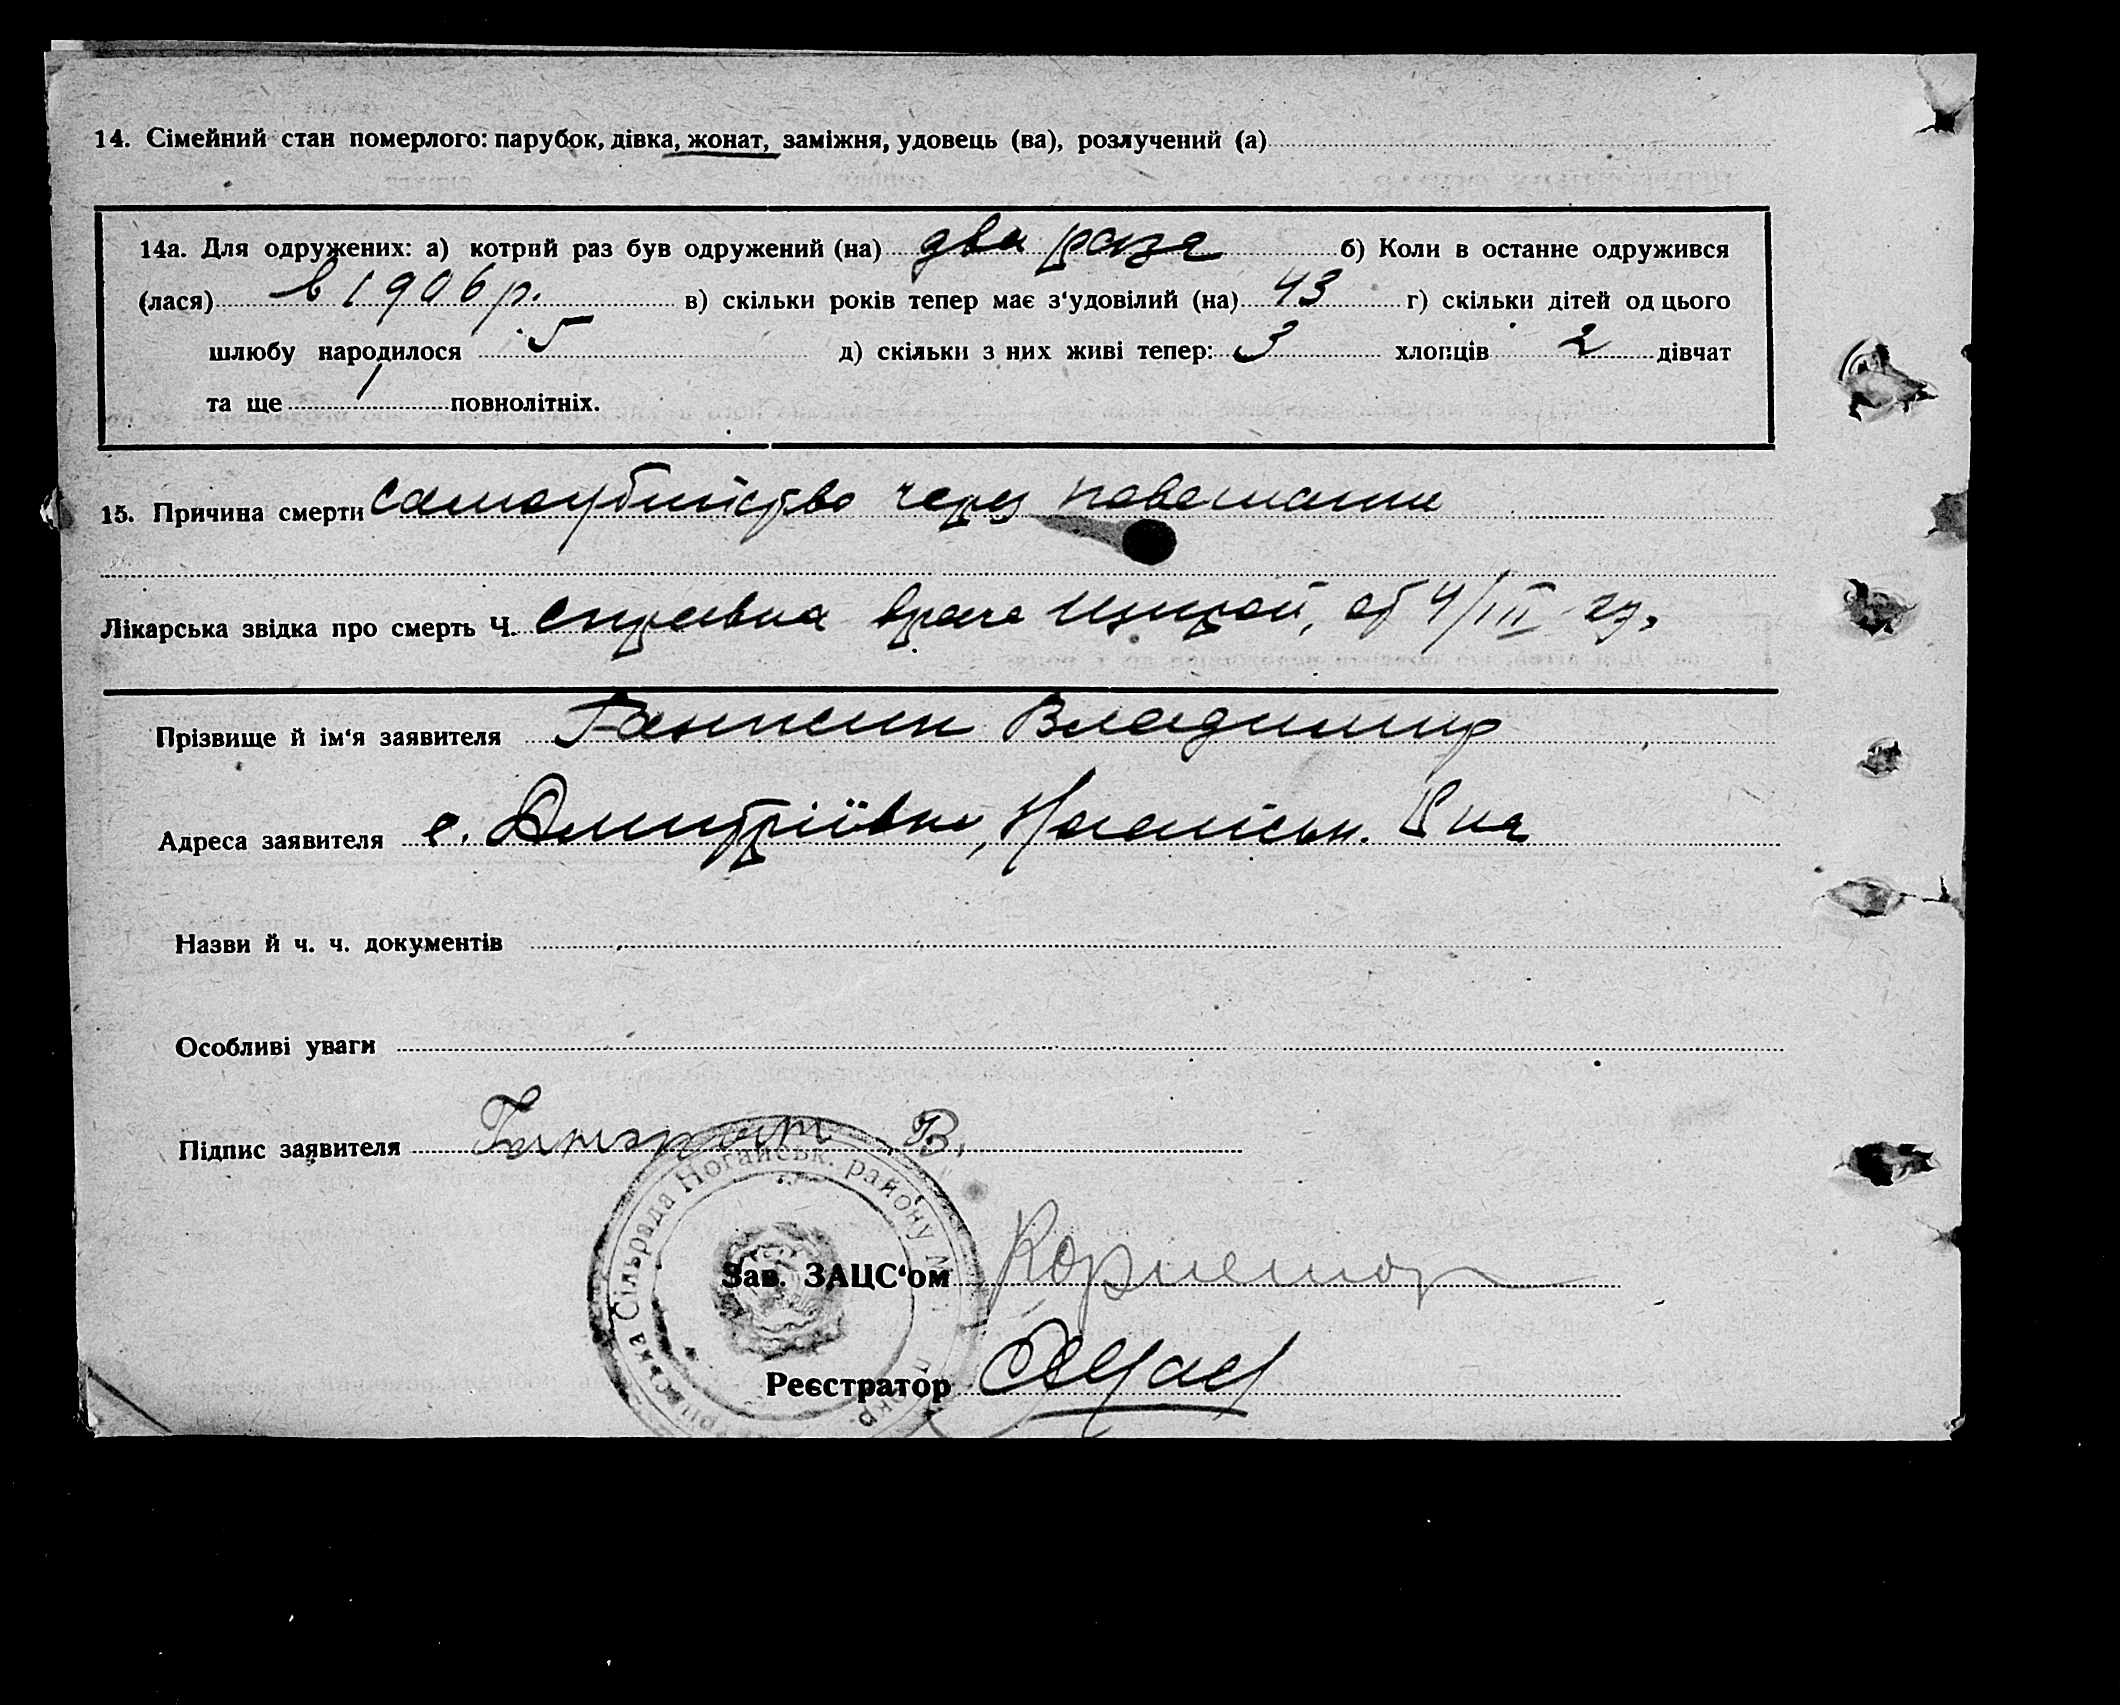 14. Сімейний стан померлого: парубок, дівка, жонат, заміжня, удовець (ва), розлучений (а)
14а. Для одружених: а) котрий раз був одружений (на) два раза б) Коли в останнє одружився
(лася) в 1906 р. в) скільки років тепер має з‘удовілий (на) 43 г) скільки дітей од цього
шлюбу народилося 5 д) скільки з них живі тепер: 3 хлопців 2 дівчат
та ще 1 повнолітніх.
15. Причина смерти самоубийство через повешание
Лікарська звідка про смерть Ч. справка врача от 4/III
Прізвище й ім‘я заявителя Владимир
Адреса заявителя с. Дмитріївка, Ногайськ. Р на
Назви й ч. ч. документів
Особливі уваги
Підпис заявителя В.
Сільрада Ногайськ. району М окр.
Зав. ЗАЦС‘ом
Реєстратор